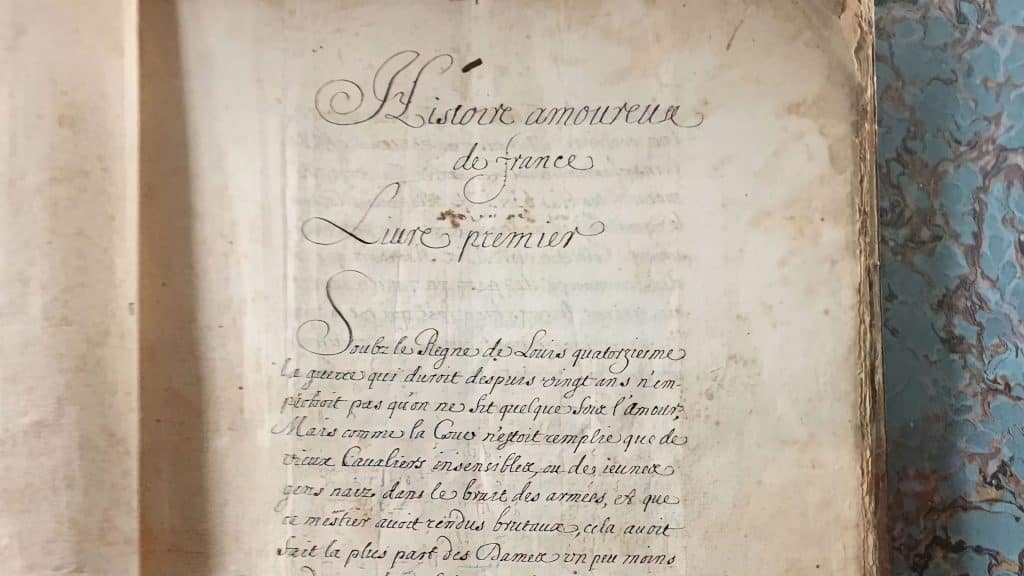 Histoire amoureuse
de france
Livre premier
Soubz le Regne de Louis quatorzieme
la guerre qui duroit despuis vingt ans n'em-
pechoit pas qu'on ne fit quelque fois l'amour.
Mais comme la Cour n'estoit remplie que de
vieux Cavaliers insensibles, ou de ieunes
gens naiz dans le bruit des armées, et que
ce mestier avoit rendus brutaux, cela avoit
fait la plus part des Dames un peu moins